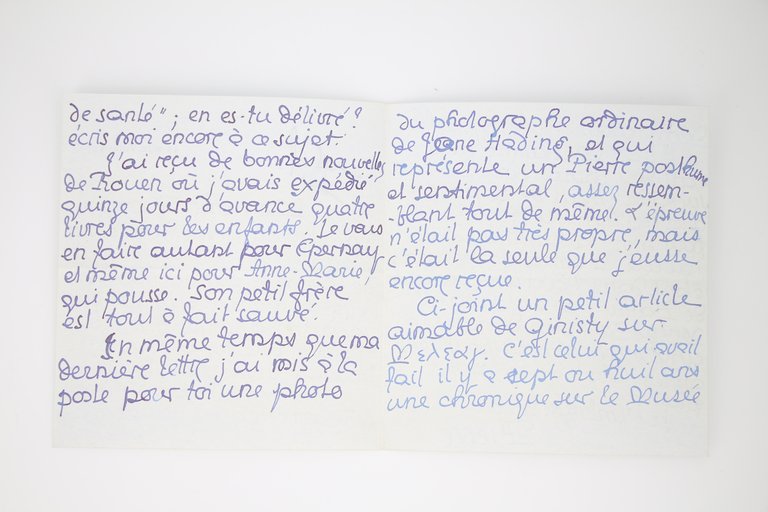 de santé" ; en es-tu délivré ?
écris moi encore à ce sujet.
J'ai reçu de bonnes nouvelles
de Rouen où j'avais expédié
quinze jours d'avance quatre
livres pour les enfants. Je vais
en faire autant pour Epernay
et même ici pour Anne-Marie,
qui pousse. Son petit frère
est tout à fait sauvé.
En même temps que ma
dernière lettre j'ai mis à la
poste pour toi une photo
du photographe ordinaire
de Jane Hading, et qui
représente un Pierre posthume
et sentimental, assez ressem-
-blant tout de même. L'épreuve
n'était pas très propre, mais
c'était la seule que j'eusse
encore reçue.
Ci-joint un petit article
aimable de Ginisty sur
C'est celui qui avait
fait il y a sept ou huit ans
une chronique sur le Musée